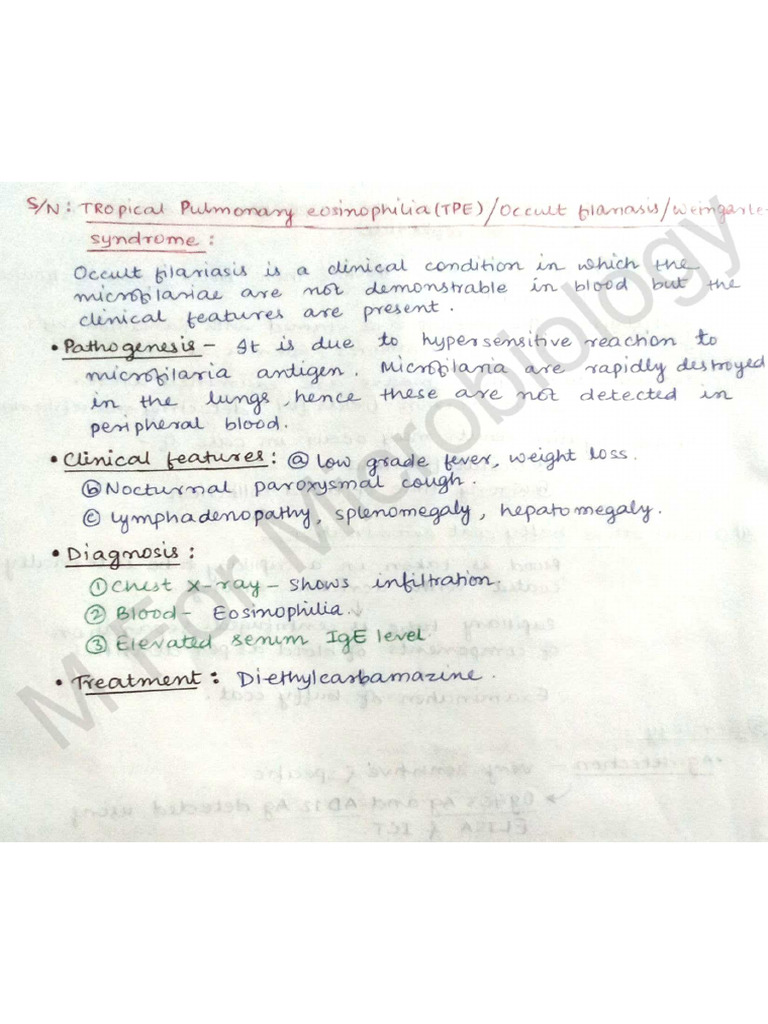 S/N: TRopical Pulmonary eosinophilia (TPE) / Occult filariasis / Weingarte
syndrome :
Occult filariasis is a clinical condition in which the
microfilariae are not demonstrable in blood but the
clinical features are present.
• Pathogenesis - It is due to hypersensitive reaction to
microfilaria antigen. Microfilaria are rapidly destroyed
in the lungs, hence these are not detected in
peripheral blood.
• Clinical features : ⓐ Low grade fever, weight loss.
ⓑ Nocturnal paroxysmal cough.
ⓒ Lymphadenopathy, splenomegaly, hepatomegaly.
• Diagnosis :
① Chest X-ray - Shows infiltration.
② Blood - Eosinophilia.
③ Elevated serum IgE level.
• Treatment : Diethylcarbamazine.
M For Microbiology